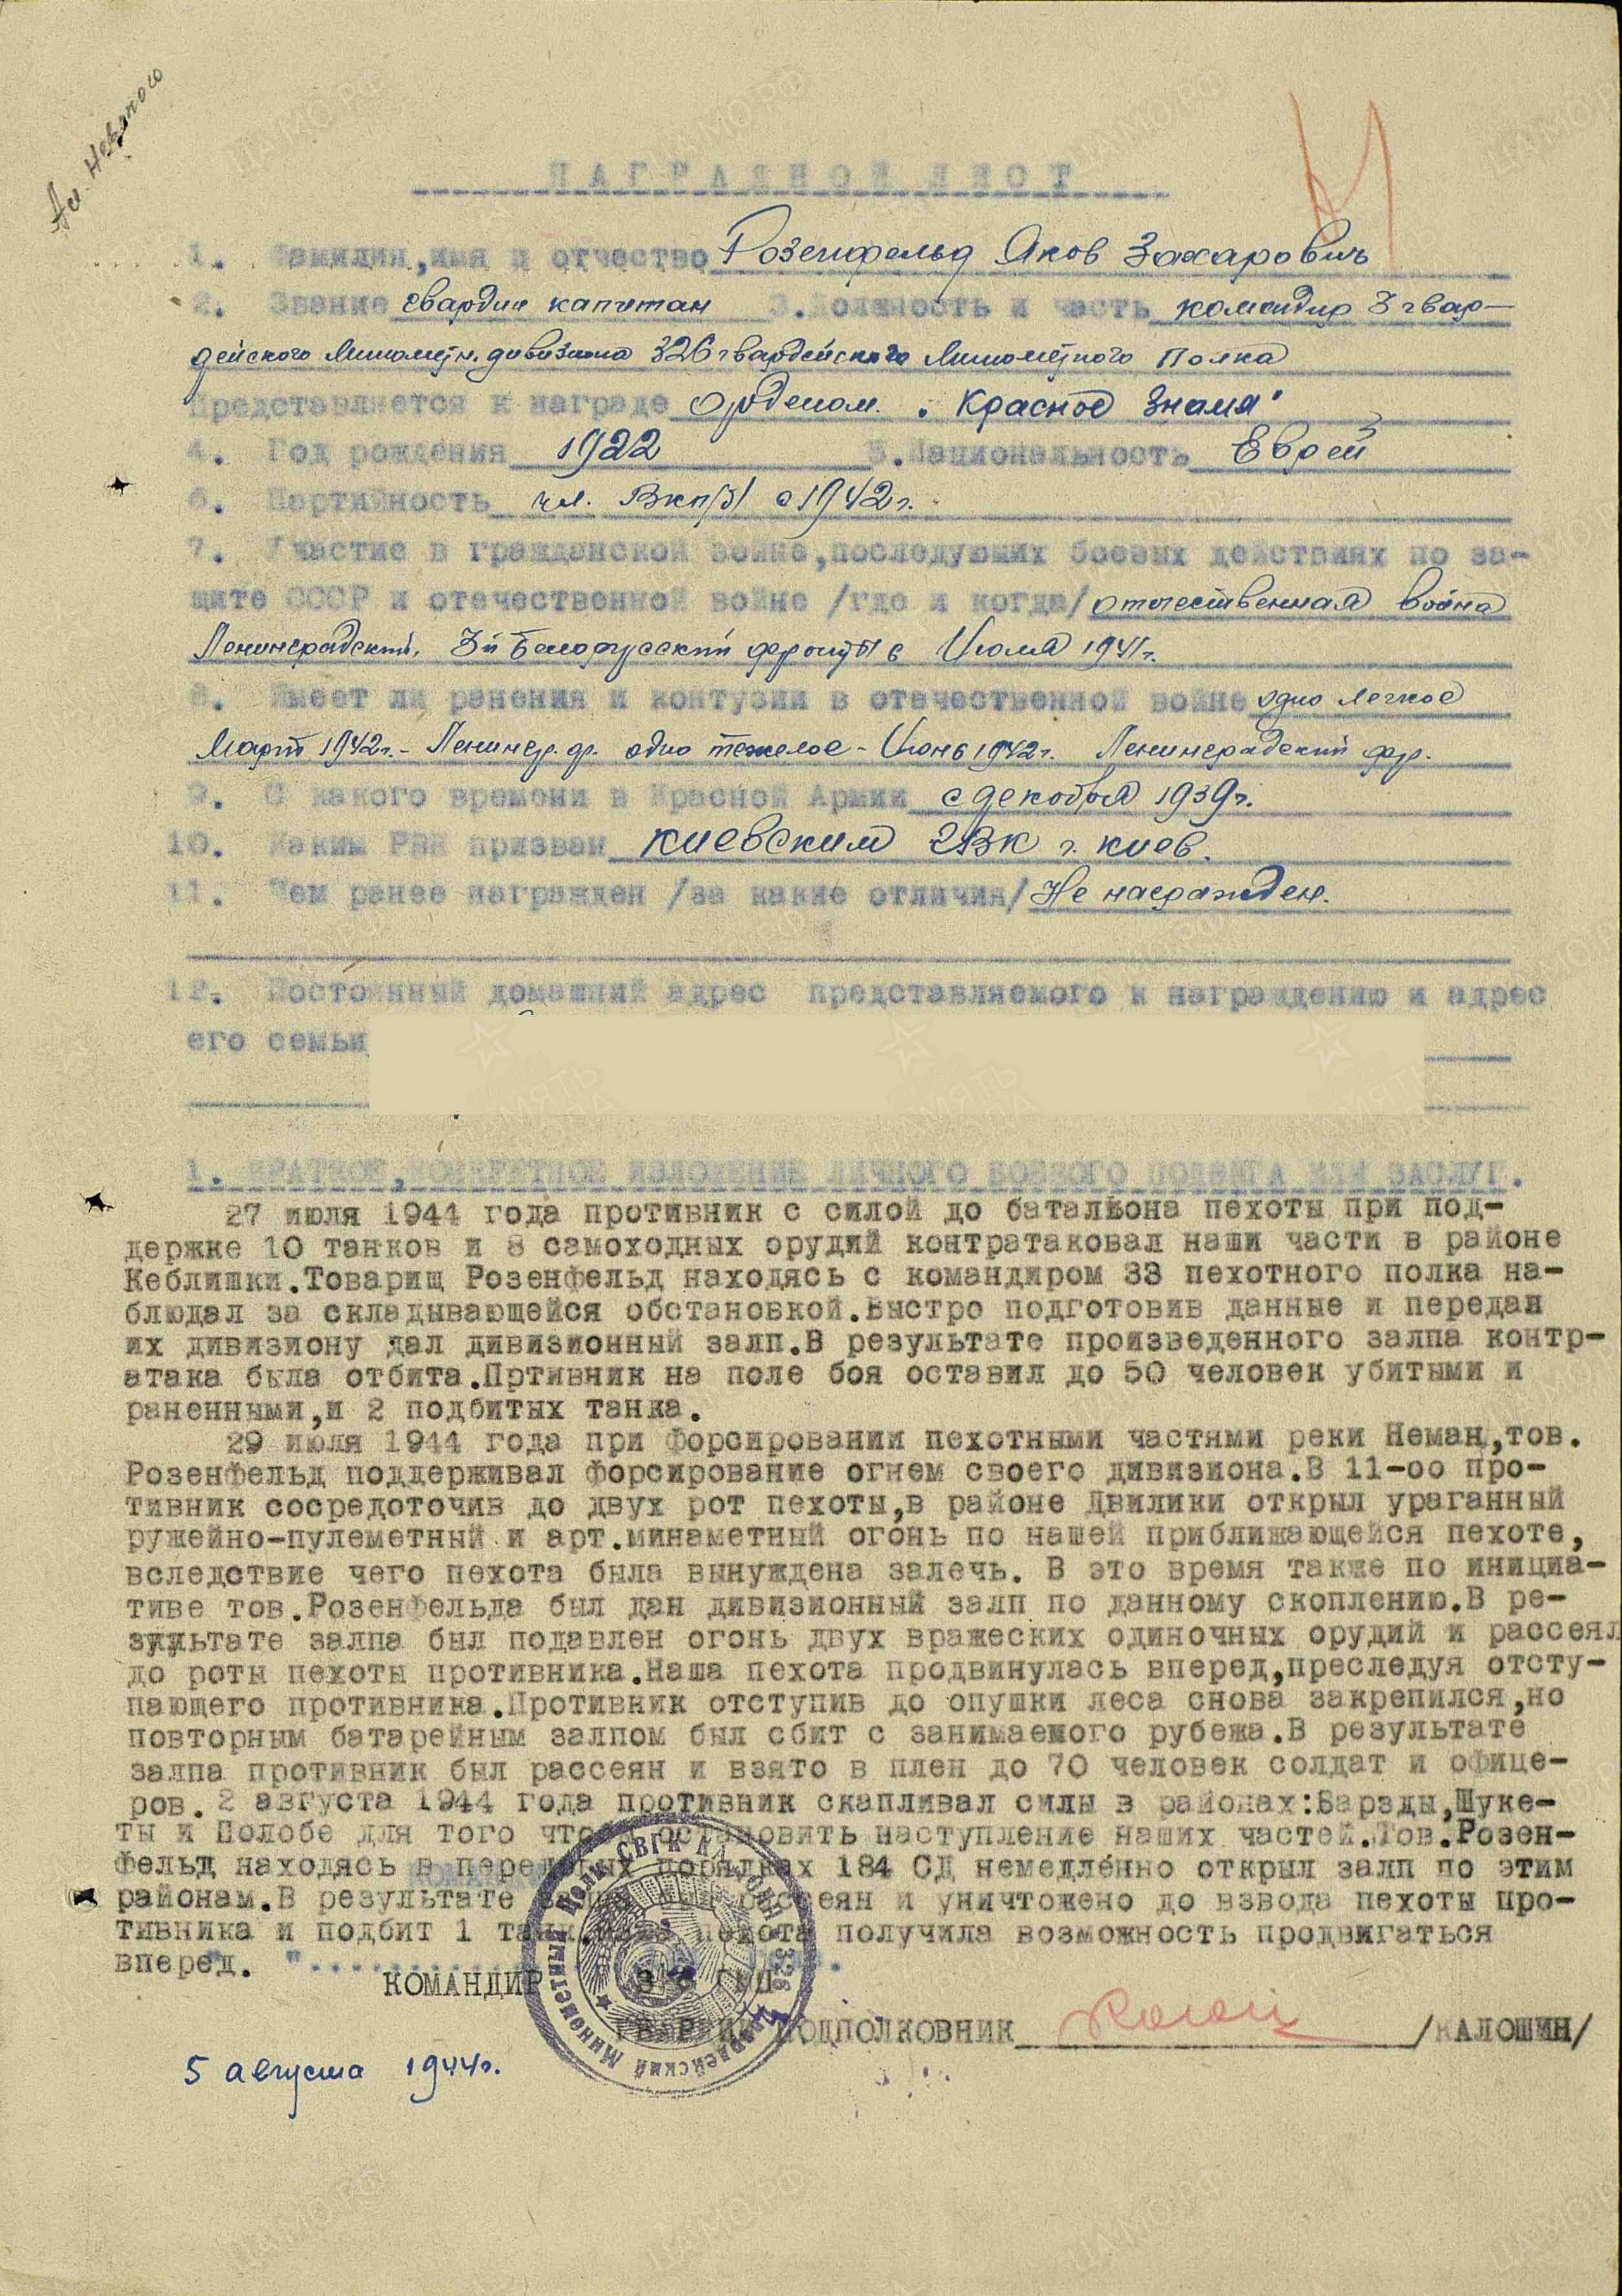 Ал. Невского
НАГРАДНОЙ ЛИСТ
1. Фамилия,имя и отчество Розенфельд Яков Захарович
2. Звание гвардии капитан 3.Должность и часть командир 3 гвар-
дейского Минометн. дивизиона 326 гвардейского Минометного Полка
Представляется к награде Орденом "Красное Знамя"
4. Год рождения 1922 5.Национальность Еврей
6. Партийность чл. ВКП/б/ с 1942 г.
7. Участие в гражданской войне,последующих боевых действиях по за-
щите СССР и отечественной войне /где и когда/ отечественная война
Ленинградский, 3й Белорусский фронты с Июля 1941г.
8. Имеет ли ранения и контузии в отечественной войне одно легкое
Март 1942г.- Ленингр. фр. одно тяжелое - Июнь 1942г. Ленинградский фр.
9. С какого времени в Красной Армии с декабря 1939г.
10. Каким РВК призван Киевским ГВК г. Киев.
11. Чем ранее награжден /за какие отличия/ Не награжден.
12. Постоянный домашний адрес представляемого к награждению и адрес
его семьи
1. КРАТКОЕ,КОНКРЕТНОЕ ИЗЛОЖЕНИЕ ЛИЧНОГО БОЕВОГО ПОДВИГА ИЛИ ЗАСЛУГ.
27 июля 1944 года противник с силой до батальона пехоты при под-
держке 10 танков и 8 самоходных орудий контратаковал наши части в районе
Кеблишки.Товарищ Розенфельд находясь с командиром 33 пехотного полка на-
блюдал за складывающейся обстановкой.Быстро подготовив данные и передав
их дивизиону дал дивизионный залп.В результате произведенного залпа контр-
атака была отбита.Пртивник на поле боя оставил до 50 человек убитыми и
раненными,и 2 подбитых танка.
29 июля 1944 года при форсировании пехотными частями реки Неман,тов.
Розенфельд поддерживал форсирование огнем своего дивизиона.В 11-оо про-
тивник сосредоточив до двух рот пехоты,в районе Двилики открыл ураганный
ружейно-пулеметный и арт.минаметный огонь по нашей приближающейся пехоте,
вследствие чего пехота была вынуждена залечь. В это время также по инициа-
тиве тов.Розенфельда был дан дивизионный залп по данному скоплению.В ре-
зультате залпа был подавлен огонь двух вражеских одиночных орудий и рассеял
до роты пехоты противника.Наша пехота продвинулась вперед,преследуя отсту-
пающего противника.Противник отступив до опушки леса снова закрепился,но
повторным батарейным залпом был сбит с занимаемого рубежа.В результате
залпа противник был рассеян и взято в плен до 70 человек солдат и офице-
ров. 2 августа 1944 года противник скапливал силы в районах:Барзды,Шуке-
ты и Полобе для того чтобы остановить наступление наших частей.Тов.Розен-
фельд находясь в передовых порядках 184 СД немедленно открыл залп по этим
районам.В результате рассеян и уничтожено до взвода пехоты про-
тивника и подбит 1 танк.Наша пехота получила возможность продвигаться
вперед.
КОМАНДИР 326 ГМП
ГВАРДИИ ПОДПОЛКОВНИК /КАЛОШИН/
5 августа 1944г.